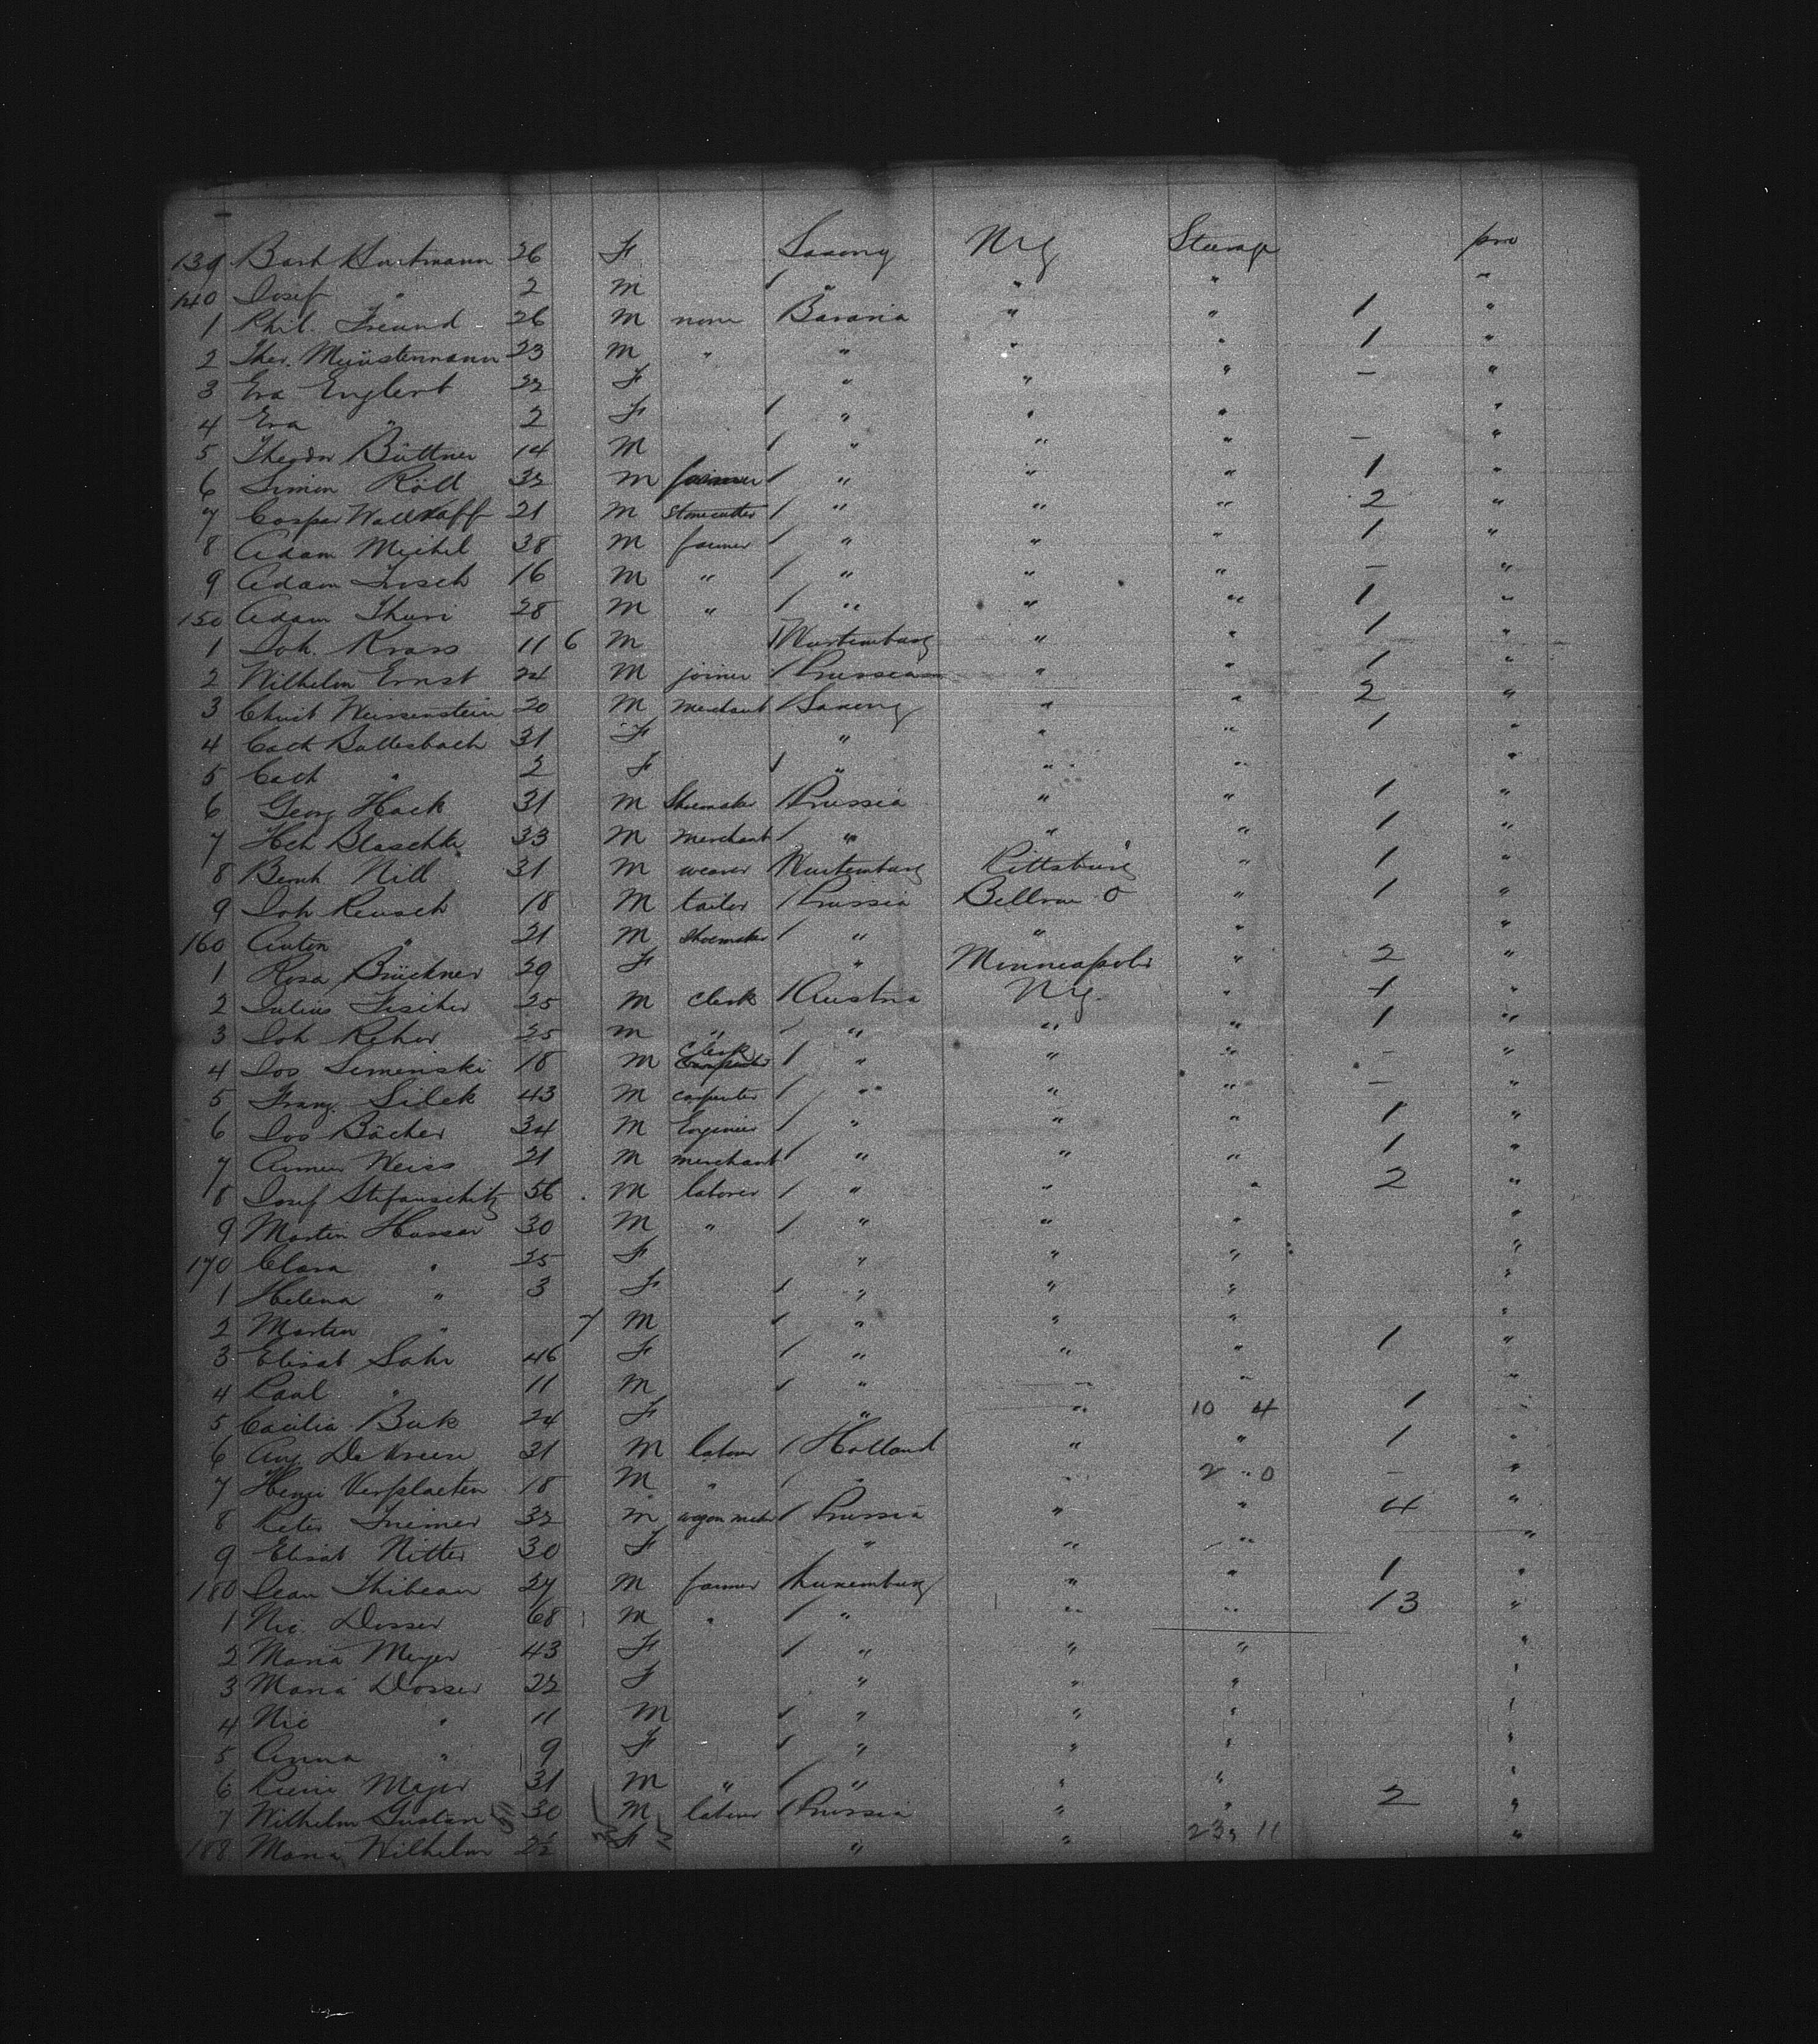 139 Barb Hartmann 26 F Saxony N.Y. Steerage pro
140 Josef " 2 M / " " " "
1 Phil. Freund 26 M none Bavaria " " 1 "
2 Ther. 23 M " " " " 1 "
3 Eva Englert 22 F " " " - "
4 Eva " 2 F / " " " "
5 Theodor Büttner 14 M / " " " - "
6 Simon Röll 32 M farmer / " " " 1 "
7 Caspar Wallraff 21 M Stonecutter / " " " 2 "
8 Adam Michel 38 M farmer / " " " 1 "
9 Adam Frosch 16 M " / " " " - "
150 Adam Thuri 28 M " / " " " 1 "
1 Joh. Krass 11 6 M / Wurtemburg " " 1 "
2 Wilhelm Ernst 24 M joiner / Prussia " " 1 "
3 Christ Weissenstein 20 M Merchant / Saxony " " 2 "
4 Cath Battesbach 31 F " " " 1 "
5 Cath " 2 F / " " " "
6 Georg Hack 31 M Shoemaker / Prussia " " 1 "
7 Hch Blaschke 33 M Merchant / " " " 1 "
8 Bernh. Nill 31 M weaver Wurtemburg Pittsburg " 1 "
9 Joh Reusch 18 M tailor / Prussia Bellvue O " 1 "
160 Anton " 21 M Shoemaker / " " " "
1 Rosa Brückner 29 F " Minneapolis " 2 "
2 Julius Fischer 25 M Clerk / Austria N.Y. " 1 "
3 Joh Reher 25 M " / " " " 1 "
4 Jos Semenski 18 M Clerk / " " " - "
5 Franz Silek 43 M carpenter / " " " - "
6 Jos Bächer 34 M Engineer / " " " 1 "
7 Armin Weiss 21 M merchant / " " " 1 "
8 Josef Stefanschitz 56 M laborer / " " " 2 "
9 Martin Hussar 30 M " / " " " "
170 Clara " 25 F " " " "
1 Helena " 3 F / " " " "
2 Martin " 7 M / " " " "
3 Elisab Sahr 46 F / " " " 1 "
4 Paul " 11 M / " " " "
5 Cacilia Buk 24 F " " 10 4 1 "
6 Aug De Vreese 31 M labour / Holland " " 1 "
7 Henri Verplaeten 18 M " / " " 2 " 0 - "
8 Peter Friemer 32 M wagon maker / Prussia " " 4 "
9 Elisab Ritter 30 F " " " "
180 Jean Thibeau 27 M farmer / Luxemburg " " 1 "
1 Nic. Dosser 68 M " / " " " 13 "
2 Maria Meyer 43 F / " " " "
3 Maria Dosser 22 F " " " "
4 Nic " 11 M / " " " "
5 Anna " 9 F / " " " "
6 Meyer 31 M " / " " " "
7 Wilhelm Gustav 30 M labour / Prussia " " 2 "
188 Maria Wilhelm 22 F " " 239 11 "